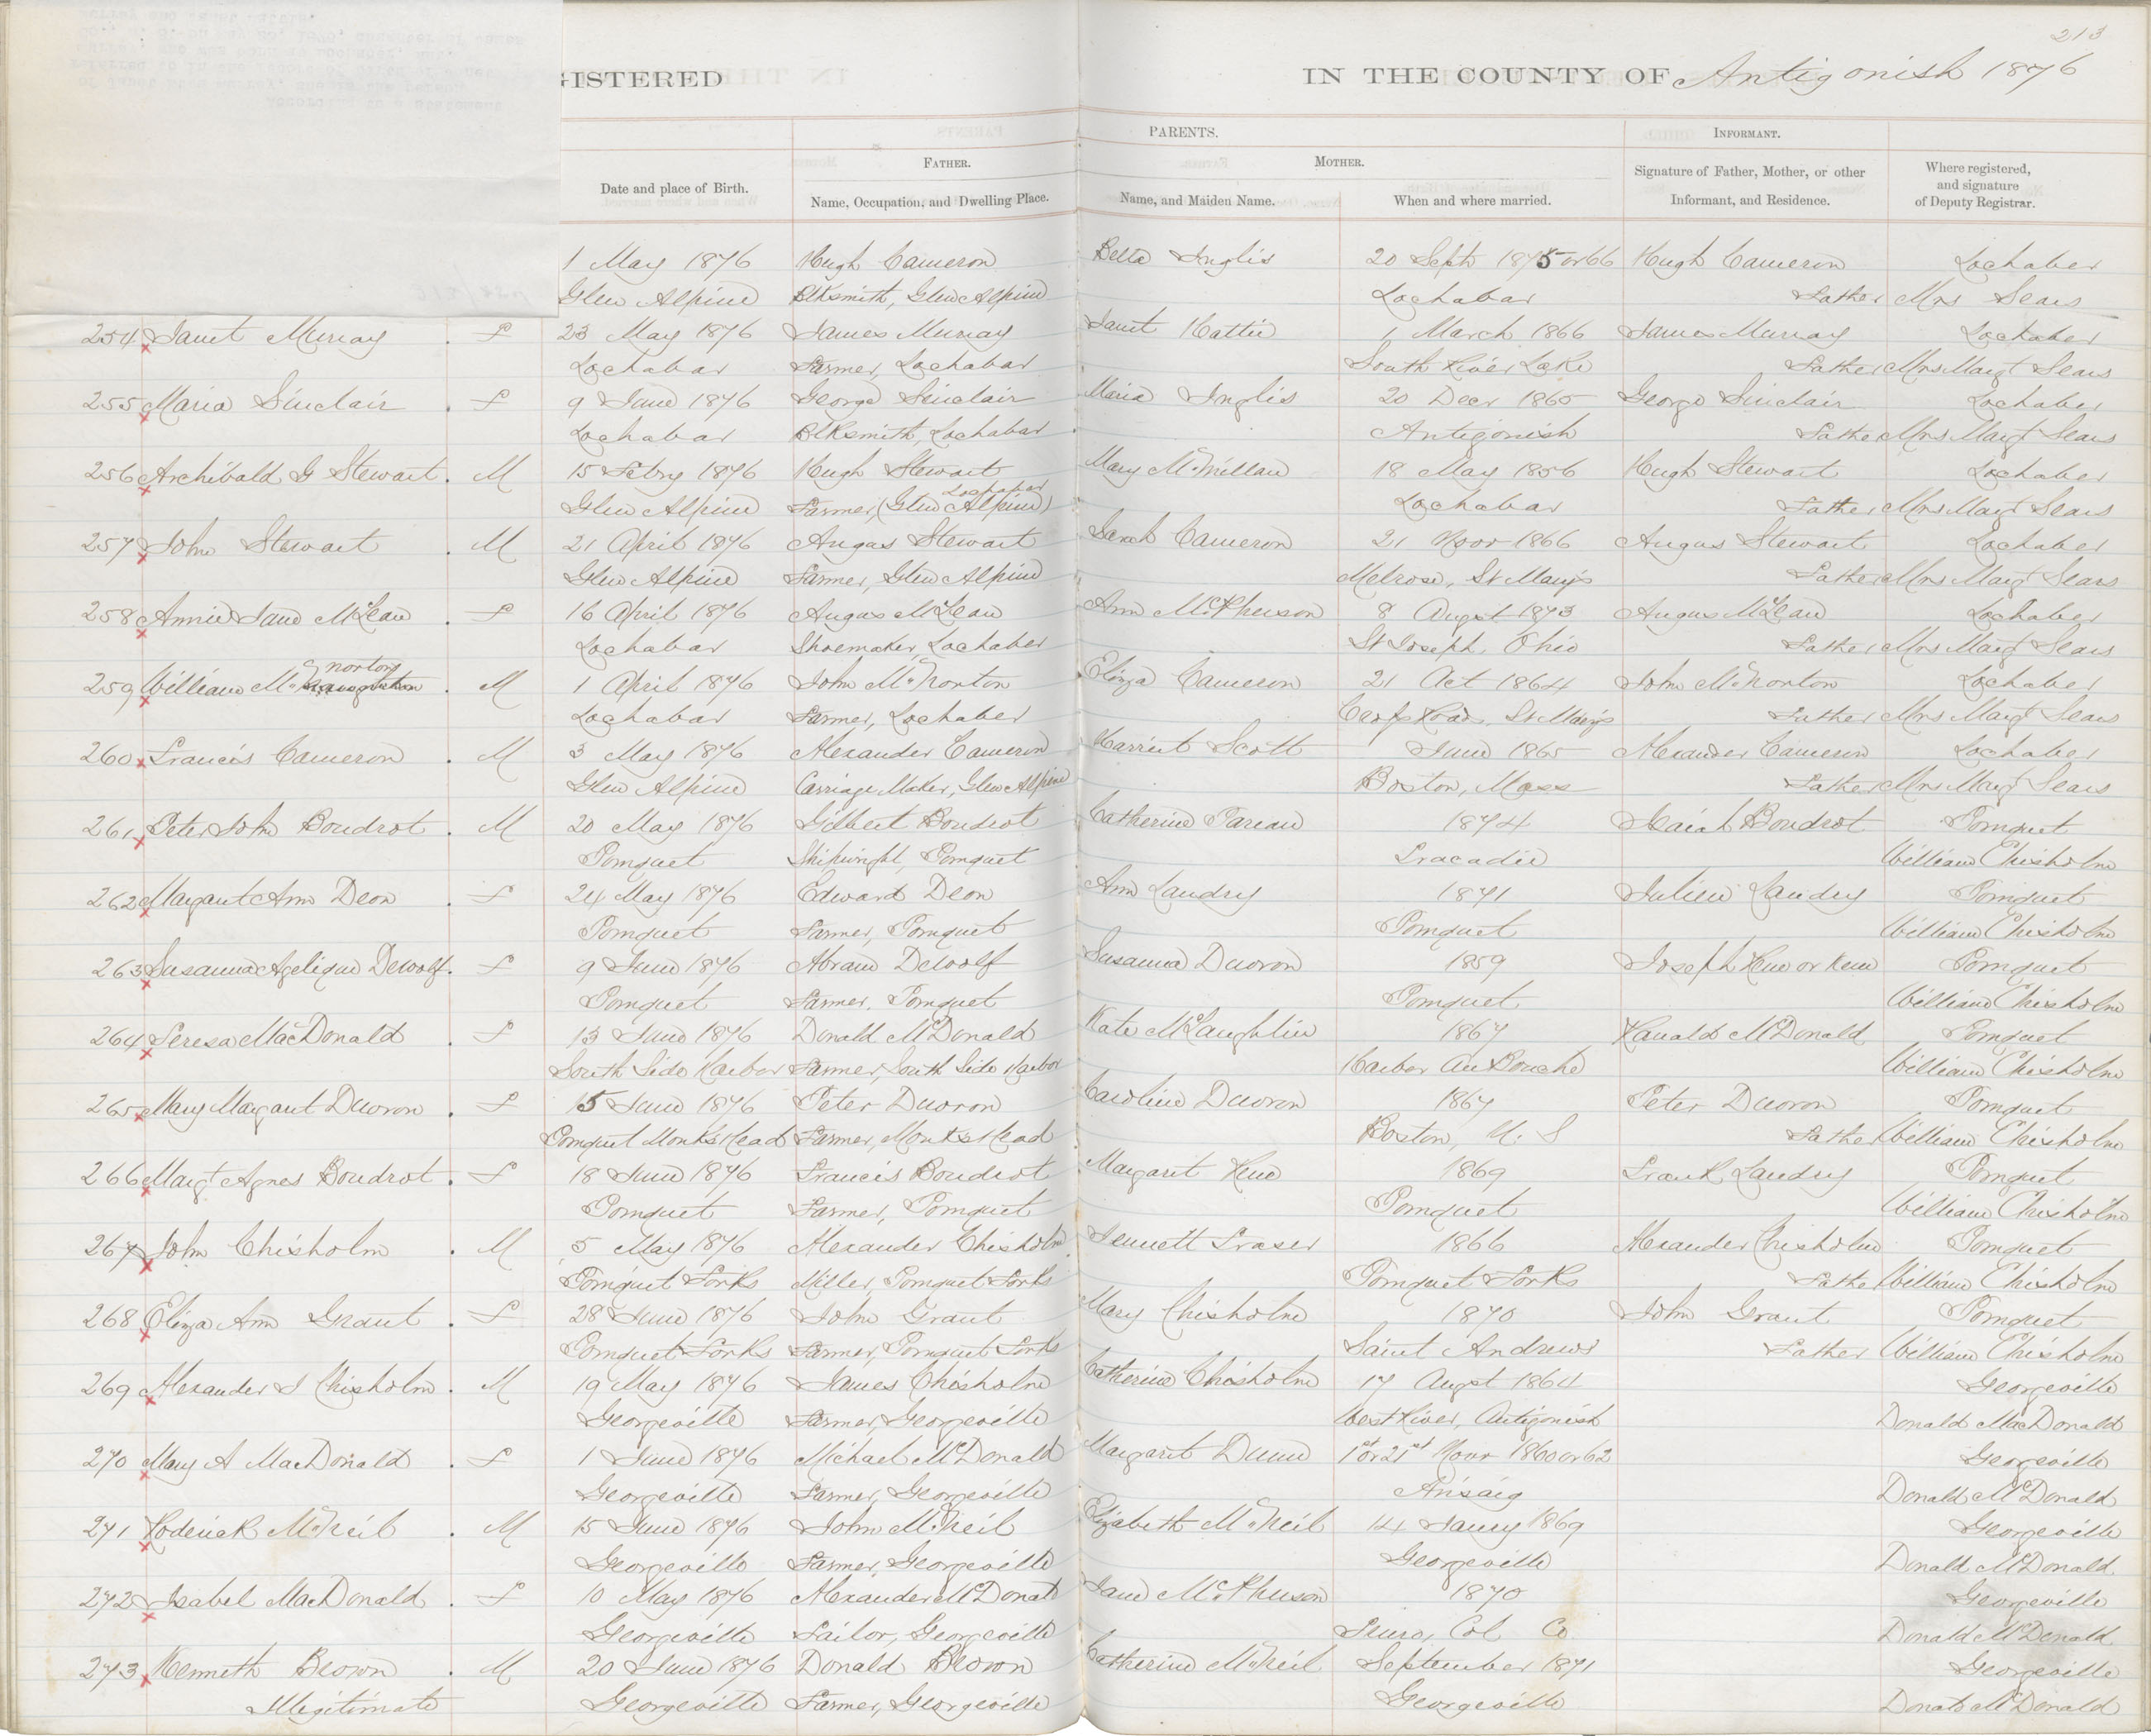 213
GISTERED IN THE COUNTY OF Antigonish 1876
PARENTS. INFORMANT.
FATHER. MOTHER.
Date and place of Birth. Name, Occupation, and Dwelling Place. Name, and Maiden Name. When and where married. Signature of Father, Mother, or other Informant, and Residence. Where registered, and signature of Deputy Registrar.
1 May 1876 Hugh Cameron Bella Inglis 20 Sept 1875 or 66 Hugh Cameron Lochaber
Glen Alpine Blksmith, Glen Alpine Lochabar Father Mrs Sears
254 Janet Murray F 23 May 1876 James Murray Janet Hattie 1 March 1866 James Murray Lochaber
Lochabar Farmer, Lochabar South River Lake Father Mrs Margt Sears
255 Maria Sinclair F 9 June 1876 George Sinclair Maria Inglis 20 Decr 1865 George Sinclair Lochaber
Lochabar Blksmith, Lochabar Antigonish Father Mrs Margt Sears
256 Archibald G Stewart M 15 Febry 1876 Hugh Stewart Mary McMillan 18 May 1856 Hugh Stewart Lochaber
Glen Alpine Farmer, (Glen Alpine) Lochaber Lochabar Father Mrs Margt Sears
257 John Stewart M 21 April 1876 Angus Stewart Sarah Cameron 21 Novr 1866 Angus Stewart Lochaber
Glen Alpine Farmer, Glen Alpine Melrose, St Mary's Father Mrs Margt Sears
258 Annie Jane McLean F 16 April 1876 Angus McLean Ann McPherson 8 Augst 1873 Angus McLean Lochaber
Lochabar Shoemaker, Lochaber St Joseph, Ohio Father Mrs Margt Sears
norton
259 William McNaughton M 1 April 1876 John McNorton Eliza Cameron 21 Oct 1864 John McNorton Lochaber
Lochabar Farmer, Lochaber Road, St Mary's Father Mrs Margt Sears
260 Francis Cameron M 3 May 1876 Alexander Cameron Harriet Scott June 1865 Alexander Cameron Lochaber
Glen Alpine Carriage Maker, Glen Alpine Boston, Mass Father Mrs Margt Sears
261 Peter John Boudrot M 20 May 1876 Gilbert Boudrot Catherine Pareau 1874 Isaiah Boudrot Pomquet
Pomquet Shipwright, Pomquet Tracadie William Chisholm
262 Margaret Ann Deon F 24 May 1876 Edward Deon Ann Landry 1871 Julien Landry Pomquet
Pomquet Farmer, Pomquet Pomquet William Chisholm
263 Susanna Agelique Dewolf F 9 June 1876 Abram Dewolf Susanna Duoron 1859 Joseph or Pomquet
Pomquet Farmer, Pomquet Pomquet William Chisholm
264 Teresa MacDonald F 13 June 1876 Donald McDonald Kate McLaughlin 1867 Ranald McDonald Pomquet
South Side Harbor Farmer, South Side Harbor Harbor Au Bouche William Chisholm
265 Mary Margaret Duoron F 15 June 1876 Peter Duoron Caroline Duoron 1867 Peter Duoron Pomquet
Pomquet Monks Head Farmer, Monks Head Boston, U. S Father William Chisholm
266 Margt Agnes Boudrot F 18 June 1876 Francis Boudrot Margaret 1869 Frank Landry Pomquet
Pomquet Farmer, Pomquet Pomquet William Chisholm
267 John Chisholm M 5 May 1876 Alexander Chisholm Jennett Fraser 1866 Alexander Chisholm Pomquet
Pomquet Forks Miller, Pomquet Forks Pomquet Forks Father William Chisholm
268 Eliza Ann Grant F 28 June 1876 John Grant Mary Chisholm 1870 John Grant Pomquet
Pomquet Forks Farmer, Pomquet Forks Saint Andrews Father William Chisholm
269 Alexander J Chisholm M 19 May 1876 James Chisholm Catherine Chisholm 17 Augst 1864 Georgeville
Georgeville Farmer, Georgeville West River, Antigonish Donald MacDonald
270 Mary A MacDonald F 1 June 1876 Michael McDonald Margaret Dunn 1st or 21st Novr 1860 or 62 Georgeville
Georgeville Farmer, Georgeville Arisaig Donald McDonald
271 Roderick McNeil M 15 June 1876 John McNeil Elizabeth McNeil 14 Jany 1869 Georgeville
Georgeville Farmer, Georgeville Georgeville Donald McDonald
272 Isabel MacDonald F 10 May 1876 Alexander McDonald Jane McPherson 1870 Georgeville
Georgeville Tailor, Georgeville Truro, Col Co Donald McDonald
273 Kenneth Brown M 20 June 1876 Donald Brown Catherine McNeil September 1871 Georgeville
Illegitimate Georgeville Farmer, Georgeville Georgeville Donald McDonald